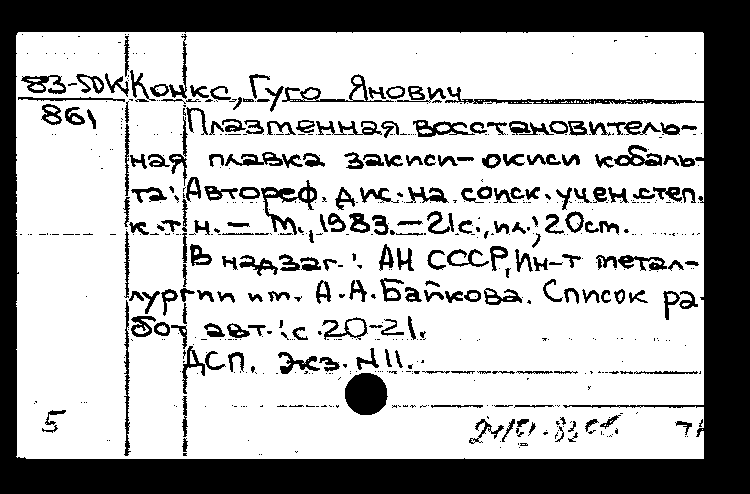 83-5DK Конкс, Гуго Янович
861 Плазменная восстановитель-
ная плавка закиси-окиси кобаль-
та: Автореф. дис. на соиск. учен. степ.
к.т.н. – М., 1983. – 21с., ил.; 20см.
В надзаг.: АН СССР, Ин-т метал-
лургии им. А.А. Байкова. Список ра-
бот авт.: с. 20-21.
ДСП. Экз. N11.
5